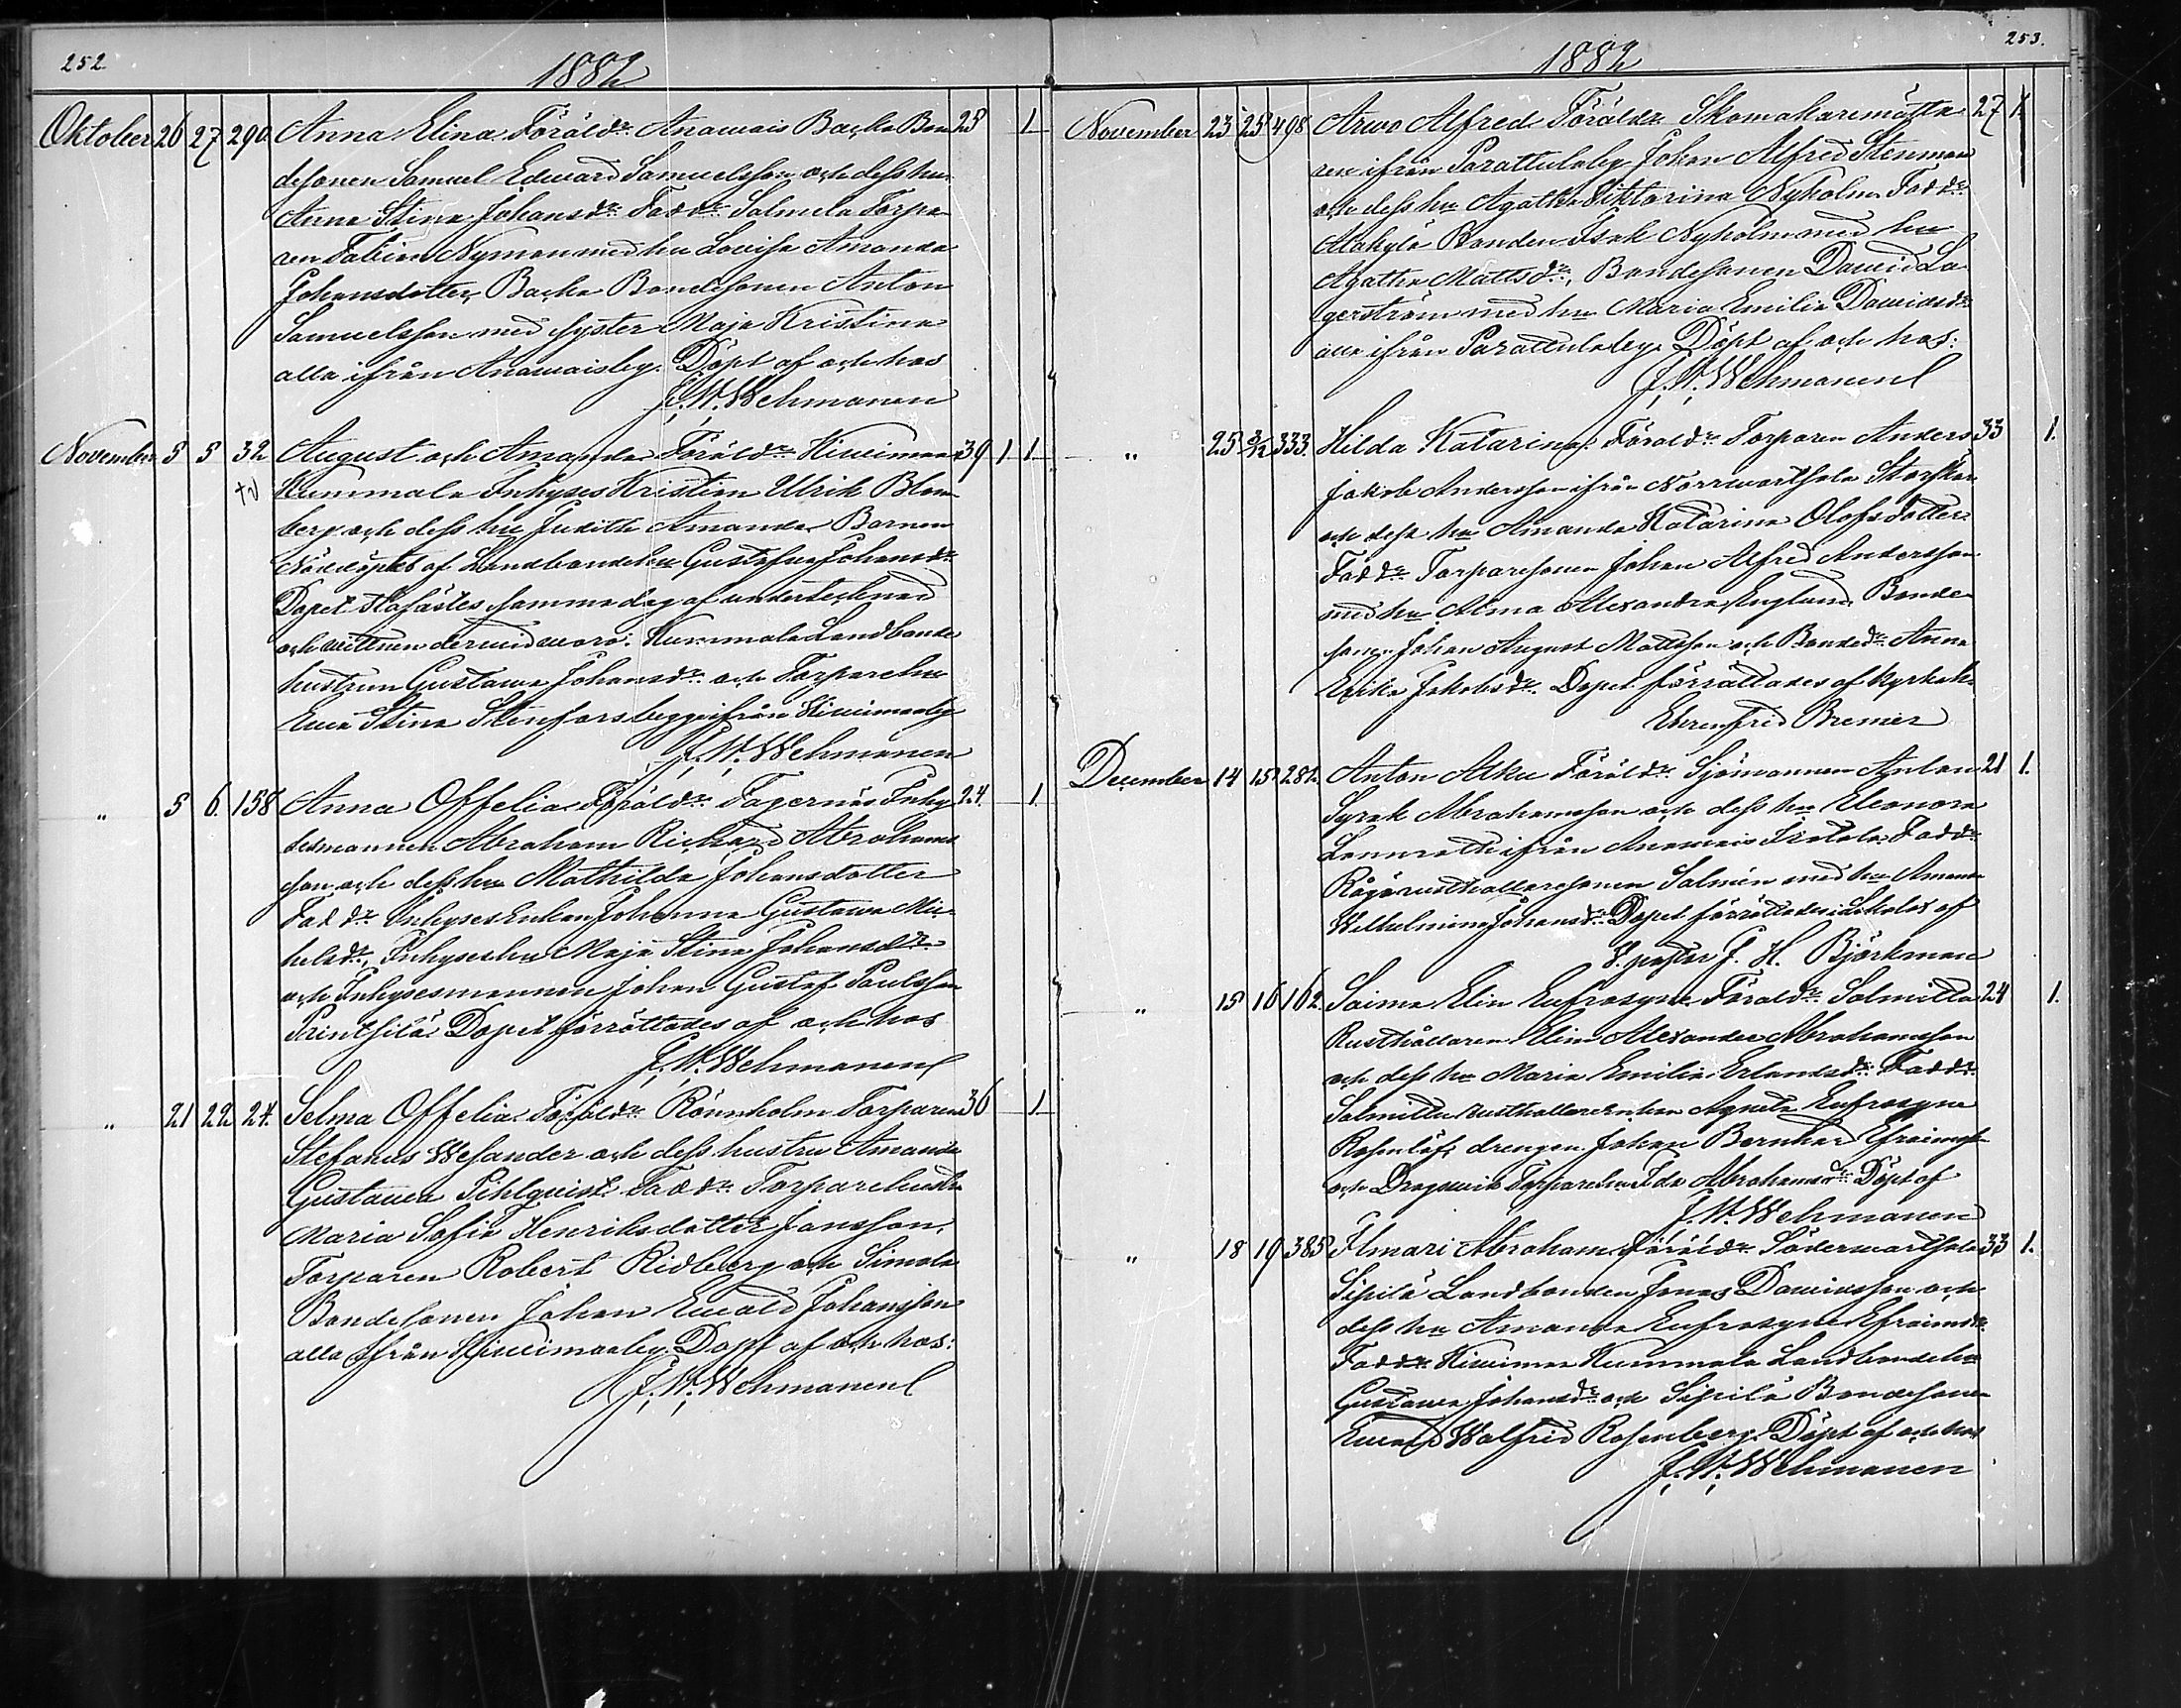 252.
1882
Oktober 26 27 290. Anna Elina. Föräldr. Anawais Backa Bon 25 1
desonen Samuel Edward Samuelsson och dess hu
Anna Stina Johansdr. Faddr. Salmela Torpa-
ren Fabian Nyman med hu Lovisa Amanda
Johansdotter, Backa Bondesonen Anton
Samuelsson med syster Maja Kristina
alla ifrån Anawaisby. Döpt af och hos
J. W. Wehmanen
November 5 5 32 August och Amanda Föräldr. Kiwimaa 39 1 1
Kummala Inhyses Kristian Ulrik Blom
berg och dess hu Judith Amanda. Barnen
Nöddöptes af Landbondehu Gustafva Johansdr.
Dopet stafästes samma dag af undertecknad
och wittnen derwid woro: Kummala Landbonde
hustrun Gustawa Johansdr. och Torparehu
Ewa Stina Stenfors begge ifrån Kiwimaaby
J. W. Wehmanen
" 5 6. 158 Anna Offelia. Föräldr. Fagernäs Inhy 24. 1.
sesmannen Abraham Richard Abrahams
son och dess hu Mathilda Johansdotter
Faddr. Inhyses Enkan Johanna Gustawa Mic-
helsdr., Inhyseshu Maja Stina Johansdr.
och Inhysesmannen Johan Gustaf Paulsson
Printsilä. Dopet förrättades af och hos
J. W. Wehmanen
" 21 22 24. Selma Offelia. Föräldr. Rönnholm Torparen 36 1
Stefanus Wesander och dess hustru Amanda
Gustawa Pihlquist. Faddr. Torparehustr.
Maria Sofia Henriksdotter Jansson,
Torparen Robert Ridberg och Simola
Bondesonen Johan Ewald Johansson
alla ifrån Kiwimaaby. Döpt af och hos:
J. W. Wehmanen
253.
1882
November 23 25 498 Arwo Alfred. Föräldr. Skomakaremästa 27 1.
ren ifrån Parattulaby Johan Alfred Stenman
och dess hu Agatha Viktorina Nyholm. Faddr.
Alakylä Bonden Isak Nyholm med hu
Agatha Mattsdr., Bondesonen Dawid La-
gerström med hu Maria Emilia Dawidsdr.
alla ifrån Parattulaby. Döpt af och hos:
J. W. Wehmanen
" 25 3/12 333. Hilda Katarina. Föräldr. Torparen Anders 33 1.
Jakob Andersson ifrån Norrwartsala
och dess hu Amanda Katarina Olofsdotter.
Faddr. Torparesonen Johan Alfred Andersson
med hu Alma Alexandra Englund, Bonde-
sonen Johan August Mattsson och Bondedr. Anna
Erika Jakobsdr. Dopet förrättades af Kyrkoh.
Ehrenfrid Bremer
December 14 15 282. Anton Alku Föräldr. Sjömannen Anton 21 1.
Syrak Abrahamsson och dess hu Eleonora
Lönnroth ifrån Anawais Fratala. Faddr.
Rågö rusthållaresonen Salmén med hu Amanda
Wilhelmina Johansdr. Dopet förrättades i af
V. pastor J. H. Björkman
" 15 16 162. Saima Elin Eufrosyne. Föräldr. Salmitta 24 1.
Rusthållaren Elim Alexander Abrahamsson
och dess hu Maria Emilia Erlandsdr. Faddr.
Salmitta rusthållare Enkan Agneta Eufrosyne
Rosenlöf, drengen Johan Bernhard Efraimss.
och Dragswik Torparehu Ida Abrahamsdr. Döpt af
J. W. Wehmanen
" 18 19 385 Ilmari Abraham. Föräldr. Söderwartsala 33 1.
Sipilä Landbonden Jonas Dawidsson och
dess hu Amanda Eufrosyne Efraimsdr.
Faddr. Kiwimaa Kummala Landbondehu
Gustawa Johansdr. och Sipilä Bondesonen
Ewald Walfrid Rosenberg. Döpt af och hos
J. W. Wehmanen